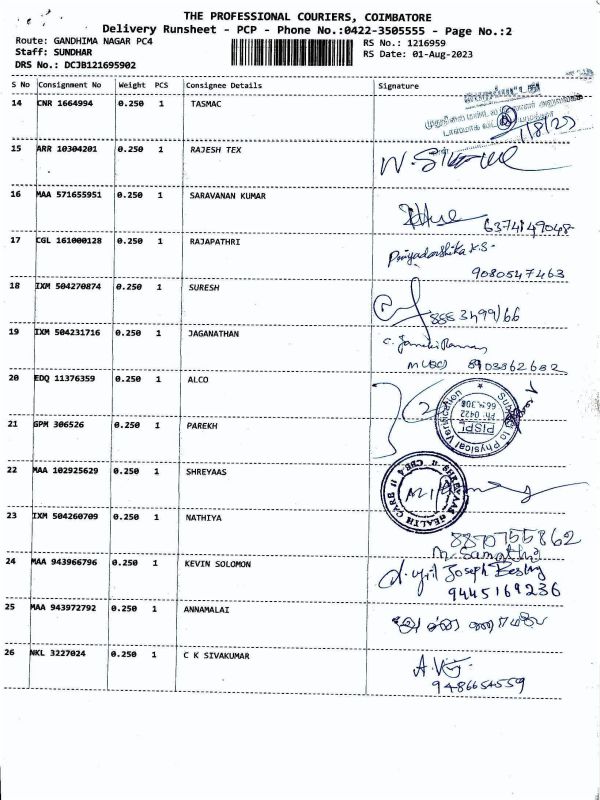 THE PROFESSIONAL COURIERS, COIMBATORE
Delivery Runsheet - PCP - Phone No.:0422-3505555 - Page No.:2
Route: GANDHIMA NAGAR PC4
RS No.: 1216959
Staff: SUNDHAR
RS Date: 01-Aug-2023
DRS No.: DCJB121695902
S No Consignment No Weight PCS Consignee Details Signature
14 CNR 1664994 0.250 1 TASMAC
1/8/23
15 ARR 10304201 0.250 1 RAJESH TEX
16 MAA 571655951 0.250 1 SARAVANAN KUMAR
6374149048
17 CGL 161000128 0.250 1 RAJAPATHRI Priyadarshika K.S-
9080547463
18 IXM 504270874 0.250 1 SURESH
19 IXM 504231716 0.250 1 JAGANATHAN
8903862682
20 EDQ 11376359 0.250 1 ALCO
Subject to Physical Verification
PISPL
Ph: 0422
21 GPM 306526 0.250 1 PAREKH
22 MAA 102925629 0.250 1 SHREYAAS
SHREYAAS HEALTH CARE
23 IXM 504260709 0.250 1 NATHIYA
8870755862
24 MAA 943966796 0.250 1 KEVIN SOLOMON
Joseph
9445169236
25 MAA 943972792 0.250 1 ANNAMALAI
26 NKL 3227024 0.250 1 C K SIVAKUMAR
9486654559